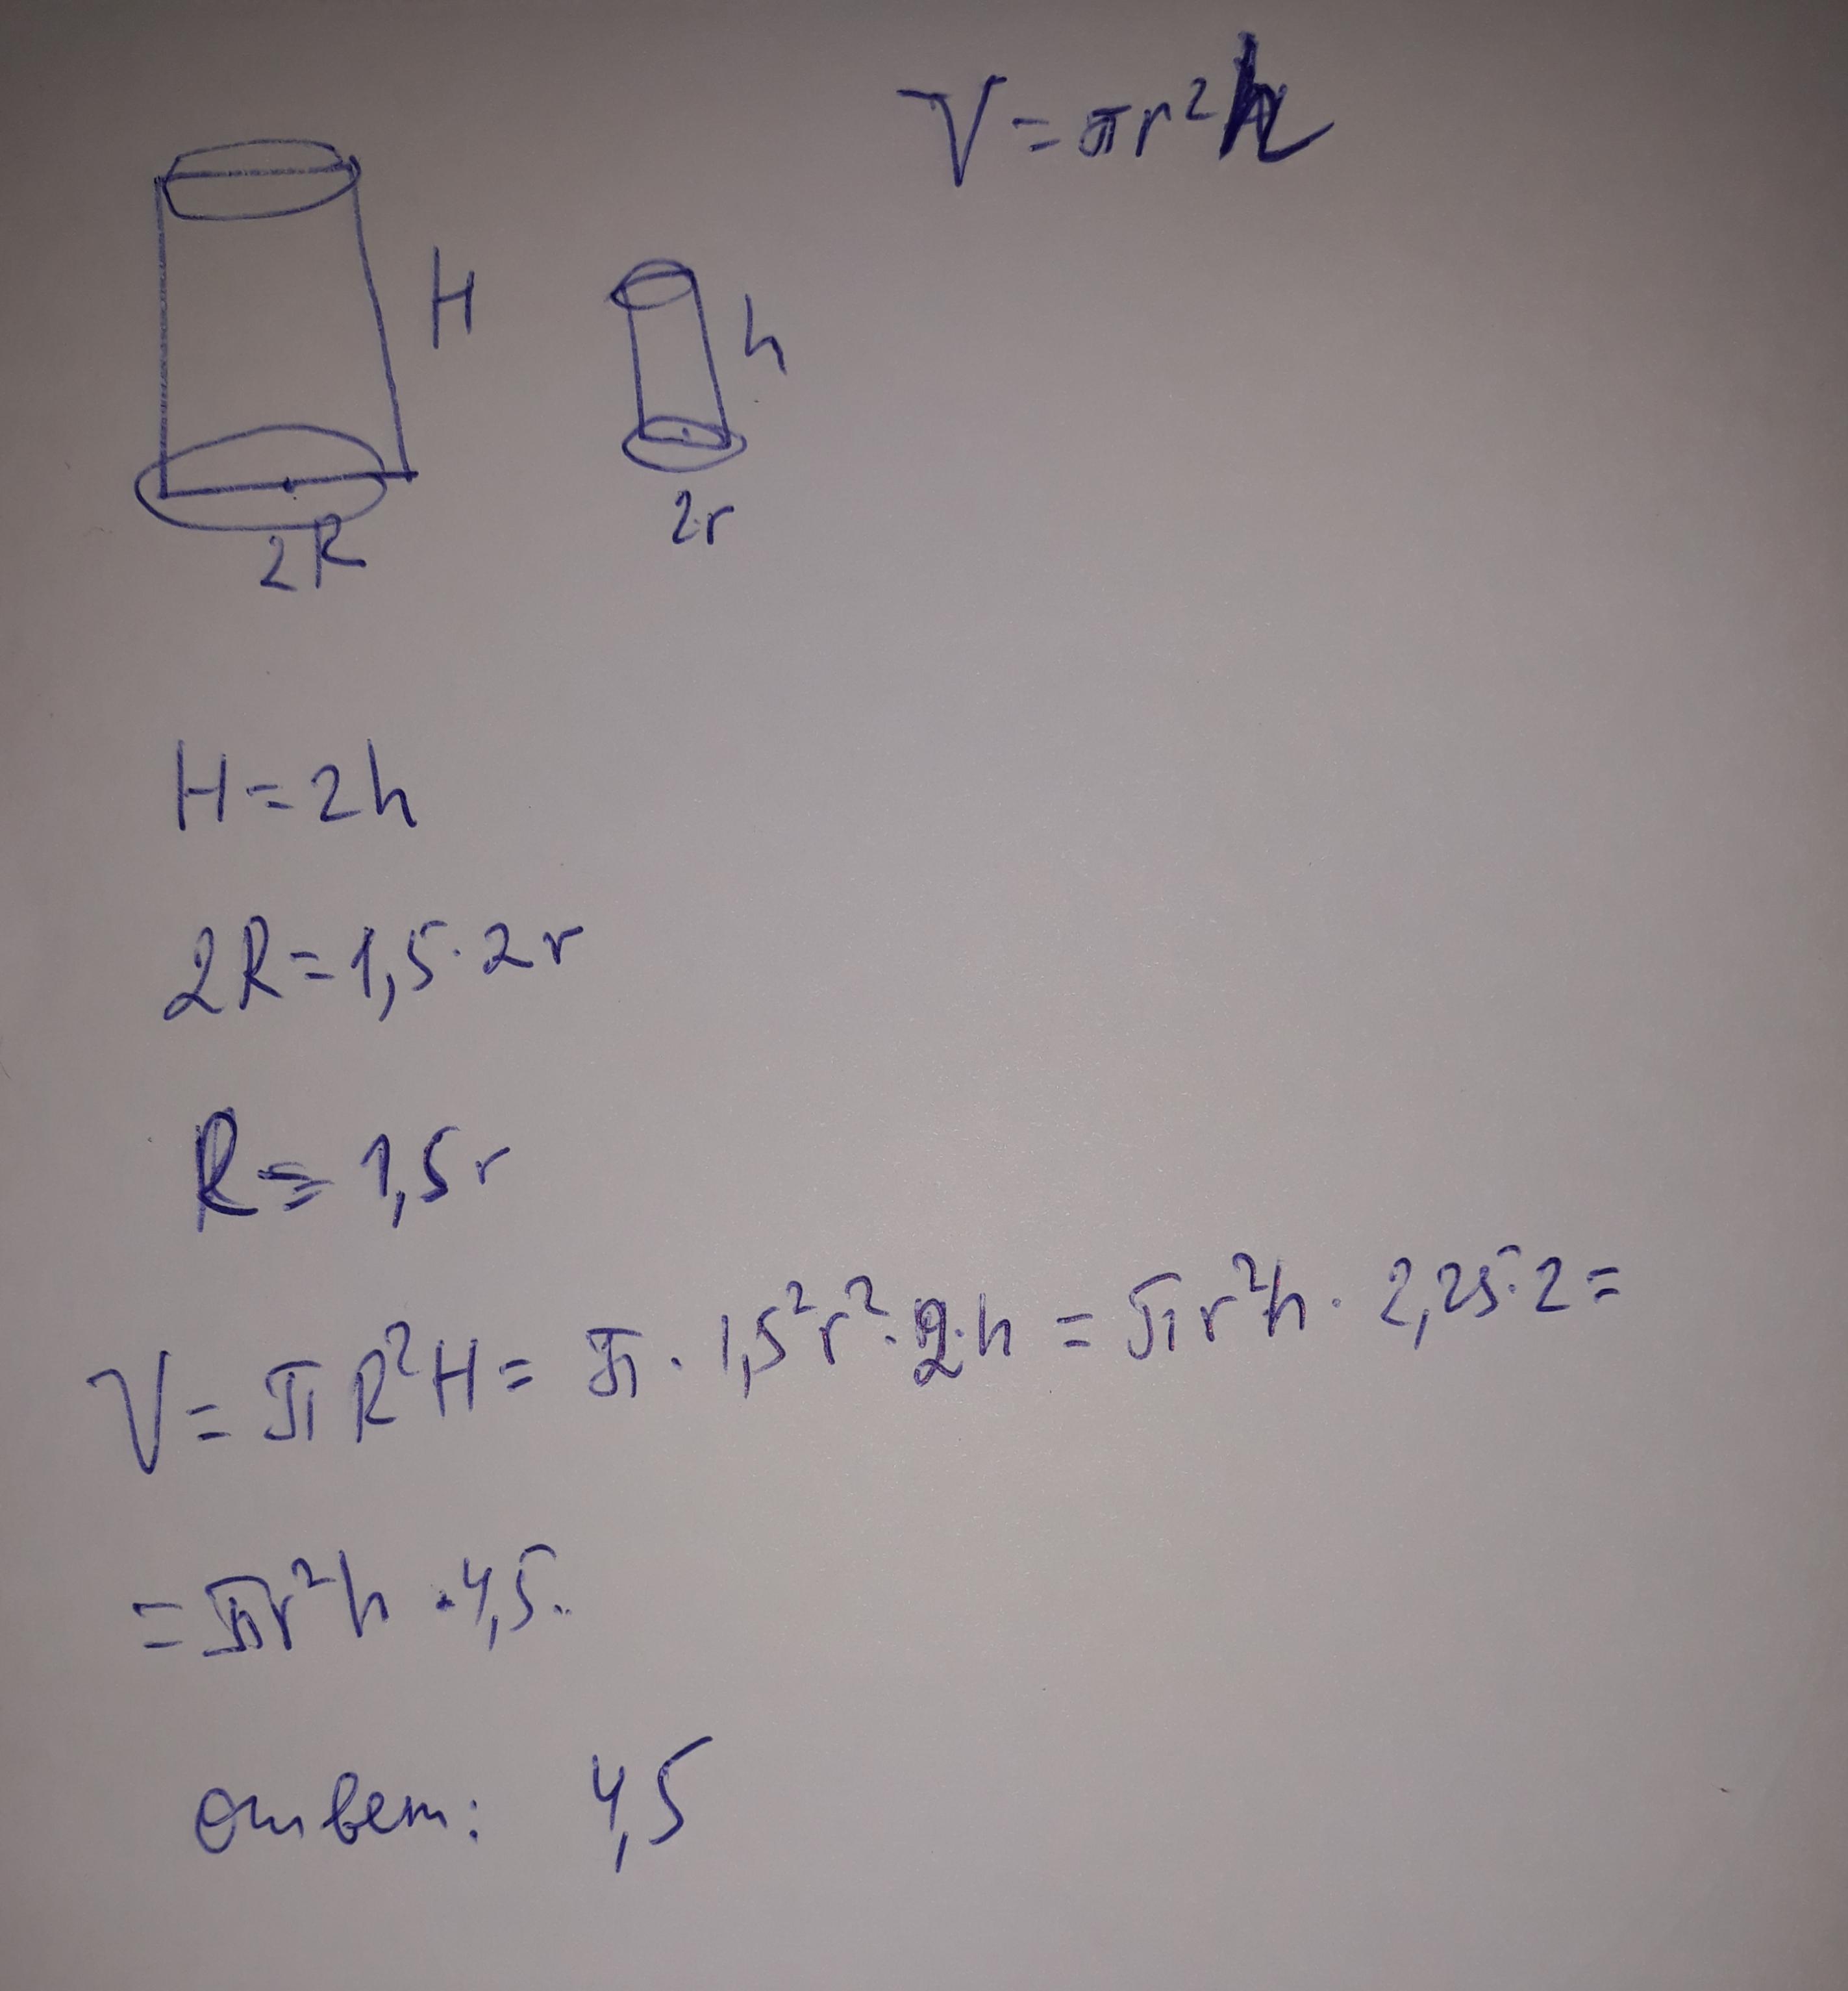 V = πr²h
H
h
2R
2r
H = 2h
2R = 1,5 · 2r
R = 1,5r
V = πR²H = π · 1,5²r² · 2 · h = πr²h · 2,25 · 2 =
= πr²h · 4,5.
ответ: 4,5